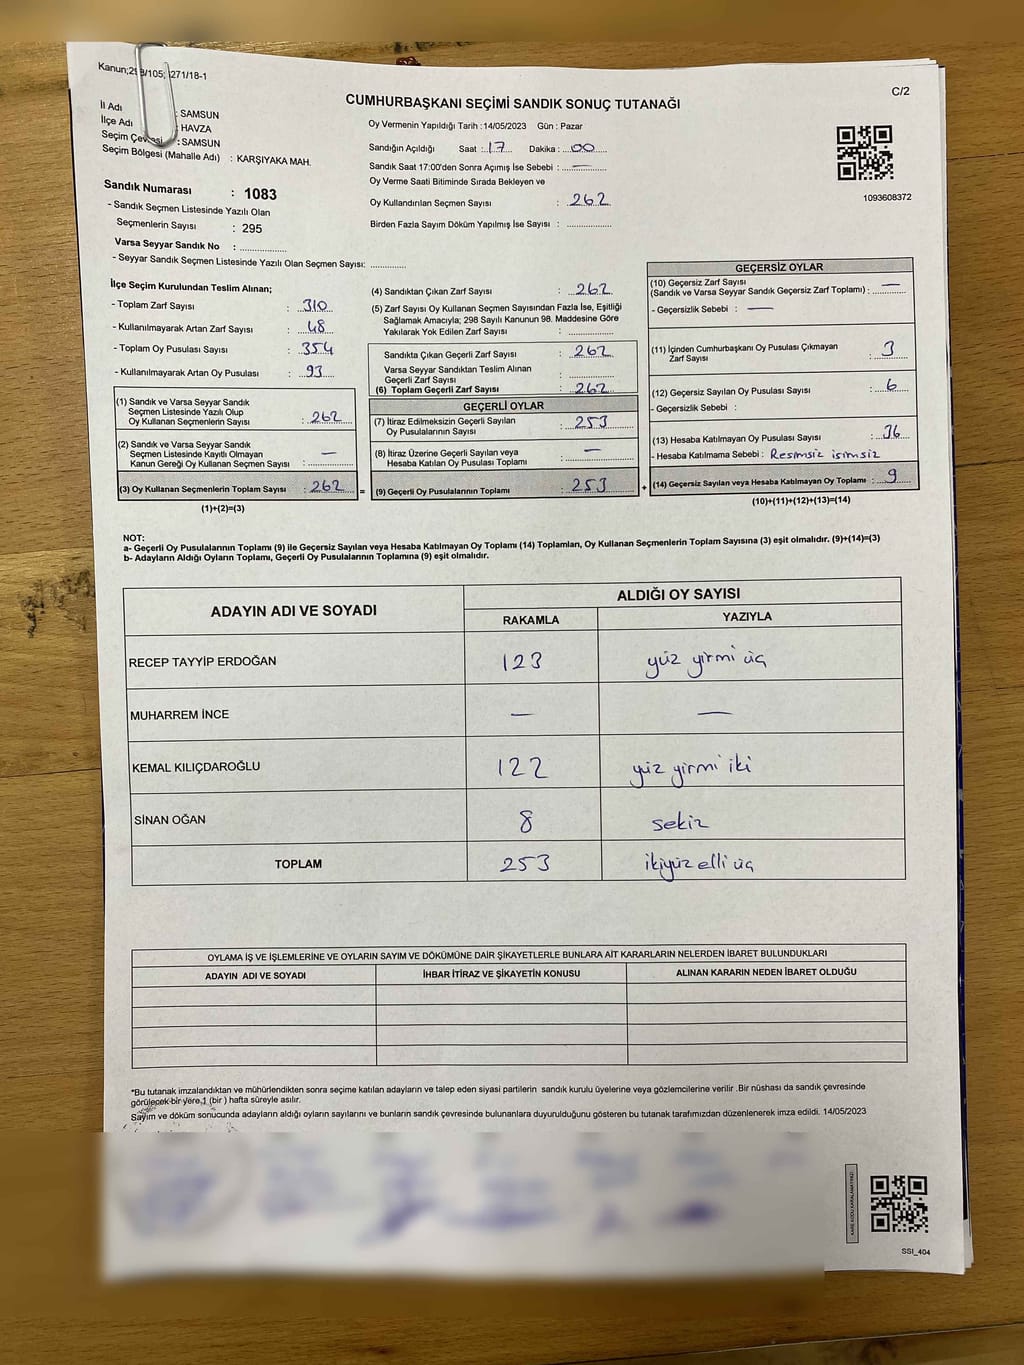 Kanun;298/105; 271/18-1
C/2
CUMHURBAŞKANI SEÇİMİ SANDIK SONUÇ TUTANAĞI
İl Adı : SAMSUN
İlçe Adı : HAVZA
Seçim Çevresi : SAMSUN
Seçim Bölgesi (Mahalle Adı) : KARŞIYAKA MAH.
Sandık Numarası : 1083
- Sandık Seçmen Listesinde Yazılı Olan
Seçmenlerin Sayısı : 295
Varsa Seyyar Sandık No : ................
- Seyyar Sandık Seçmen Listesinde Yazılı Olan Seçmen Sayısı: ............
Oy Vermenin Yapıldığı Tarih :14/05/2023 Gün : Pazar
Sandığın Açıldığı Saat :..17.. Dakika :..00....
Sandık Saat 17:00'den Sonra Açımış İse Sebebi : —
Oy Verme Saati Bitiminde Sırada Bekleyen ve
Oy Kullandırılan Seçmen Sayısı : 262
Birden Fazla Sayım Döküm Yapılmış İse Sayısı : ...............
1093608372
İlçe Seçim Kurulundan Teslim Alınan;
- Toplam Zarf Sayısı : 310
- Kullanılmayarak Artan Zarf Sayısı : 48
- Toplam Oy Pusulası Sayısı : 354
- Kullanılmayarak Artan Oy Pusulası : 93
(1) Sandık ve Varsa Seyyar Sandık
Seçmen Listesinde Yazılı Olup
Oy Kullanan Seçmenlerin Sayısı : 262
(2) Sandık ve Varsa Seyyar Sandık
Seçmen Listesinde Kayıtlı Olmayan
Kanun Gereği Oy Kullanan Seçmen Sayısı : —
(3) Oy Kullanan Seçmenlerin Toplam Sayısı : 262 =
(1)+(2)=(3)
(4) Sandıktan Çıkan Zarf Sayısı : 262
(5) Zarf Sayısı Oy Kullanan Seçmen Sayısından Fazla İse, Eşitliği
Sağlamak Amacıyla; 298 Sayılı Kanunun 98. Maddesine Göre
Yakılarak Yok Edilen Zarf Sayısı : ...............
Sandıkta Çıkan Geçerli Zarf Sayısı : 262
Varsa Seyyar Sandıktan Teslim Alınan
Geçerli Zarf Sayısı : ...............
(6) Toplam Geçerli Zarf Sayısı : 262
GEÇERLİ OYLAR
(7) İtiraz Edilmeksizin Geçerli Sayılan
Oy Pusulalarının Sayısı : 253
(8) İtiraz Üzerine Geçerli Sayılan veya
Hesaba Katılan Oy Pusulası Toplamı : —
(9) Geçerli Oy Pusulalarının Toplamı : 253 +
GEÇERSİZ OYLAR
(10) Geçersiz Zarf Sayısı
(Sandık ve Varsa Seyyar Sandık Geçersiz Zarf Toplamı) : —
- Geçersizlik Sebebi : —
(11) İçinden Cumhurbaşkanı Oy Pusulası Çıkmayan
Zarf Sayısı : 3
(12) Geçersiz Sayılan Oy Pusulası Sayısı : 6
- Geçersizlik Sebebi :
(13) Hesaba Katılmayan Oy Pusulası Sayısı : 36
- Hesaba Katılmama Sebebi : Resimsiz isimsiz
(14) Geçersiz Sayılan veya Hesaba Katılmayan Oy Toplamı : 9
(10)+(11)+(12)+(13)=(14)
NOT:
a- Geçerli Oy Pusulalarının Toplamı (9) ile Geçersiz Sayılan veya Hesaba Katılmayan Oy Toplamı (14) Toplamları, Oy Kullanan Seçmenlerin Toplam Sayısına (3) eşit olmalıdır. (9)+(14)=(3)
b- Adayların Aldığı Oyların Toplamı, Geçerli Oy Pusulalarının Toplamına (9) eşit olmalıdır.
ADAYIN ADI VE SOYADI
ALDIĞI OY SAYISI
RAKAMLA YAZIYLA
RECEP TAYYİP ERDOĞAN 123 yüz yirmi üç
MUHARREM İNCE — —
KEMAL KILIÇDAROĞLU 122 yüz yirmi iki
SİNAN OĞAN 8 sekiz
TOPLAM 253 ikiyüz elli üç
OYLAMA İŞ VE İŞLEMLERİNE VE OYLARIN SAYIM VE DÖKÜMÜNE DAİR ŞİKAYETLERLE BUNLARA AİT KARARLARIN NELERDEN İBARET BULUNDUKLARI
ADAYIN ADI VE SOYADI İHBAR İTİRAZ VE ŞİKAYETİN KONUSU ALINAN KARARIN NEDEN İBARET OLDUĞU
*Bu tutanak imzalandıktan ve mühürlendikten sonra seçime katılan adayların ve talep eden siyasi partilerin sandık kurulu üyelerine veya gözlemcilerine verilir .Bir nüshası da sandık çevresinde
görülecek bir yere 1 (bir ) hafta süreyle asılır.
Sayım ve döküm sonucunda adayların aldığı oyların sayılarını ve bunların sandık çevresinde bulunanlara duyurulduğunu gösteren bu tutanak tarafımızdan düzenlenerek imza edildi. 14/05/2023
KARE KODU KARALAMAYINIZ!
SSI_404